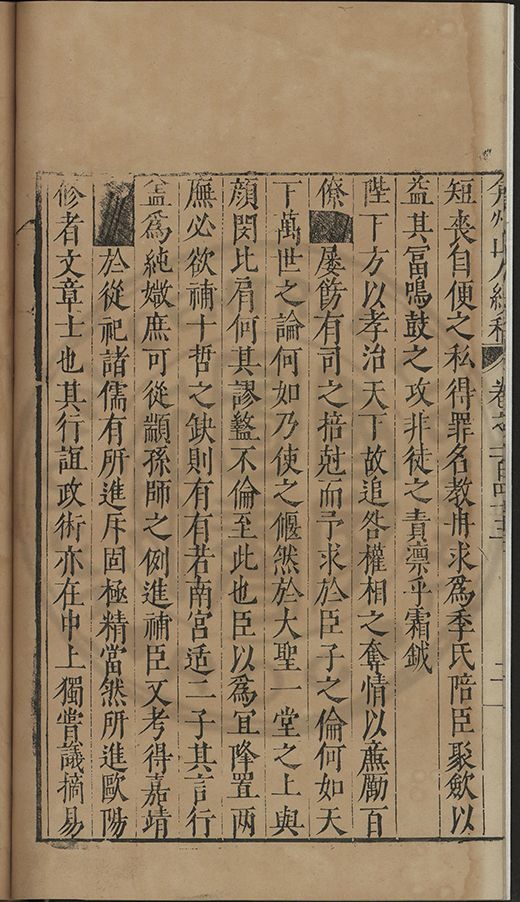 弇州山人續稿 卷之一百四十三 二
短喪自便之私得罪名教冉求爲季氏陪臣聚斂以
益其富鳴鼓之攻非徒之責凛乎霜鉞
陛下方以孝治天下故追咎權相之奪情以麃勵百
僚 屢飭有司之掊尅而予求於臣子之倫何如天
下萬世之論何如乃使之偃然於大聖一堂之上與
顔閔比肩何其謬盭不倫至此也臣以爲宜降置兩
廡必欲補十哲之缺則有有若南宮适二子其言行
益爲純媺庶可從顓孫師之例進補臣又考得嘉靖
於從祀諸儒有所進斥固極精當然所進歐陽
修者文章士也其行誼政術亦在中上獨嘗議摘易